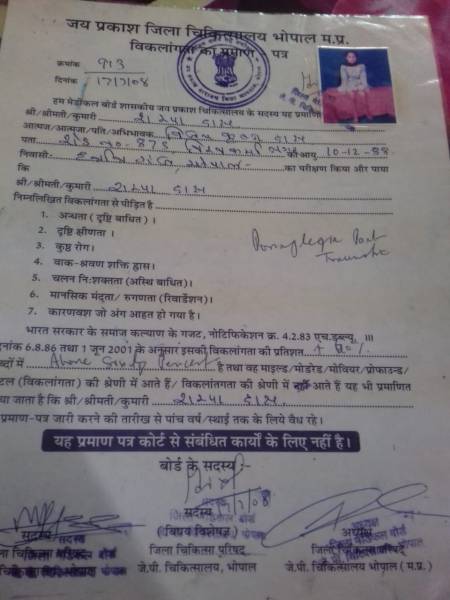 जय प्रकाश जिला चिकित्सालय भोपाल म.प्र.
विकलांगता का प्रमाण पत्र
क्रमांक 913
दिनांक 17/7/08
हम मेडीकल बोर्ड शासकीय जय प्रकाश चिकित्सालय के सदस्य यह प्रमाणि
श्री/श्रीमती/कुमारी
आत्मज/आत्मजा/पति/अभिभावक
पता की आयु 10-12-88
निवासी:- भोपाल का परीक्षण किया और पाया
कि
श्री/श्रीमती/कुमारी
निम्नलिखित विकलांगता से पीड़ित है
1. अन्धता (दृष्टि बाधित)।
2. दृष्टि क्षीणता।
3. कुष्ठ रोग।
Paraplegia Post
Traumatic
4. वाक-श्रवण शक्ति ह्रास।
5. चलन निःशक्तता (अस्थि बाधित)।
6. मानसिक मंदता/ रुगणता (रिवार्डेशन)।
7. कारणवश जो अंग आहत हो गया है।
भारत सरकार के समाज कल्याण के गजट, नोटिफिकेशन क्र. 4.2.83 एच.डब्ल्यू. III
दिनांक 6.8.86 तथा 1 जून 2001 के अनुसार इसकी विकलांगता की प्रतिशत
ब्दों में Above Percent है तथा वह माइल्ड/मोडरेड/मोवियर/प्रोफाउन्ड/
टल (विकलांगता) की श्रेणी में आते हैं/ विकलांतगता की श्रेणी में आते हैं यह भी प्रमाणित
या जाता है कि श्री/श्रीमती/कुमारी
प्रमाण-पत्र जारी करने की तारीख से पांच वर्ष/स्थाई तक के लिये वैध रहे।
यह प्रमाण पत्र कोर्ट से संबंधित कार्यो के लिए नहीं है।
बोर्ड के सदस्य:-
सदस्य सदस्य अध्यक्ष
(विषय विशेषज्ञ)
ला चिकित्सा परिषद् जिला चिकित्सा परिषद् जिला चिकित्सा परिषद्
चिकित्सालय, भोपाल जे.पी. चिकित्सालय, भोपाल जे.पी. चिकित्सालय भोपाल (म.प्र.)